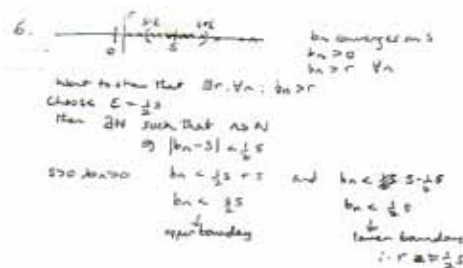 6.
r
s-ε s+ε
0 s
bn converges on s
bn > 0
bn > r ∀n
Want to show that ∃r. ∀n : bn > r
Choose ε = ½s
then ∃N such that n>N
⇒ |bn - s| < ½s
s>0 bn>0 bn < ½s + s and bn < s-½s
bn < 3/2 s bn < ½s
↓ ↓
upper boundary lower boundary
∴ r = ½s